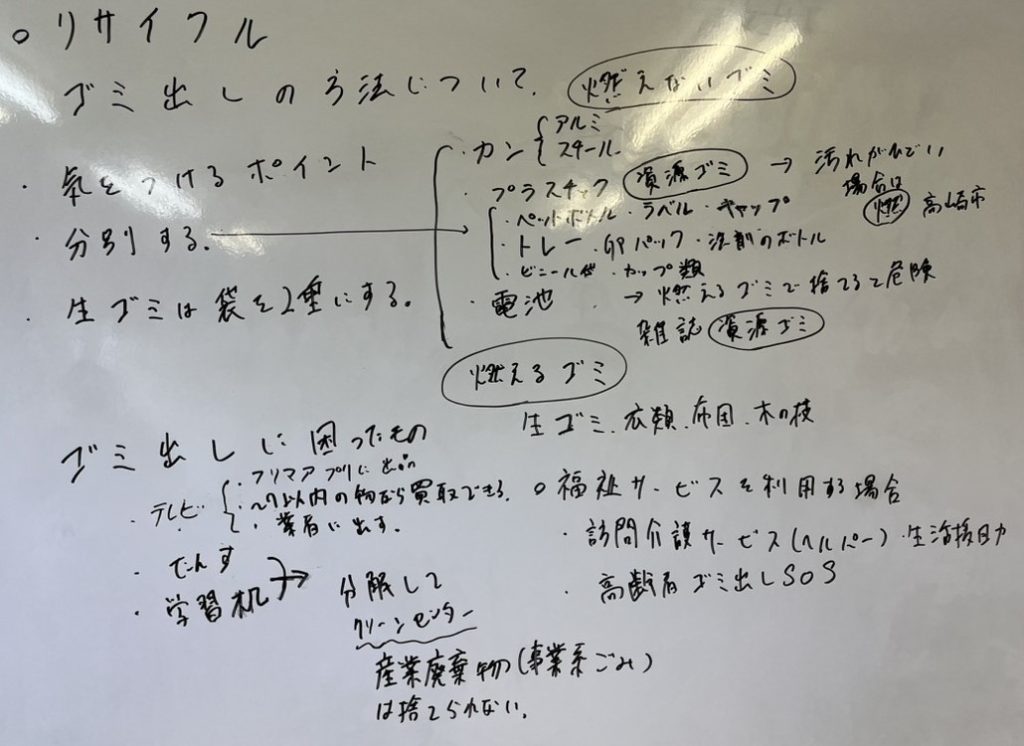 ○リサイクル
ゴミ出しの方法について. 燃えないゴミ
・気をつけるポイント
・分別する.
・生ゴミは袋を2重にする.
・カン アルミ
スチール
・プラスチック 資源ゴミ → 汚れがひどい
場合は
燃 高崎市
・ペットボトル・ラベル・キャップ
・トレー・卵パック・洗剤のボトル
・ビニール袋・カップ類
・電池 → 燃えるゴミで捨てると危険
雑誌 資源ゴミ
燃えるゴミ
生ゴミ.衣類.布団.木の枝
ゴミ出しに困ったもの
・テレビ ・フリマアプリに出品
・7年以内の物なら買取できる.
・業者に出す.
・たんす
・学習机 → 分解して
クリーンセンター
産業廃棄物(事業系ごみ)
は捨てられない.
○福祉サービスを利用する場合
・訪問介護サービス(ヘルパー)・生活援助
・高齢者ゴミ出しSOS